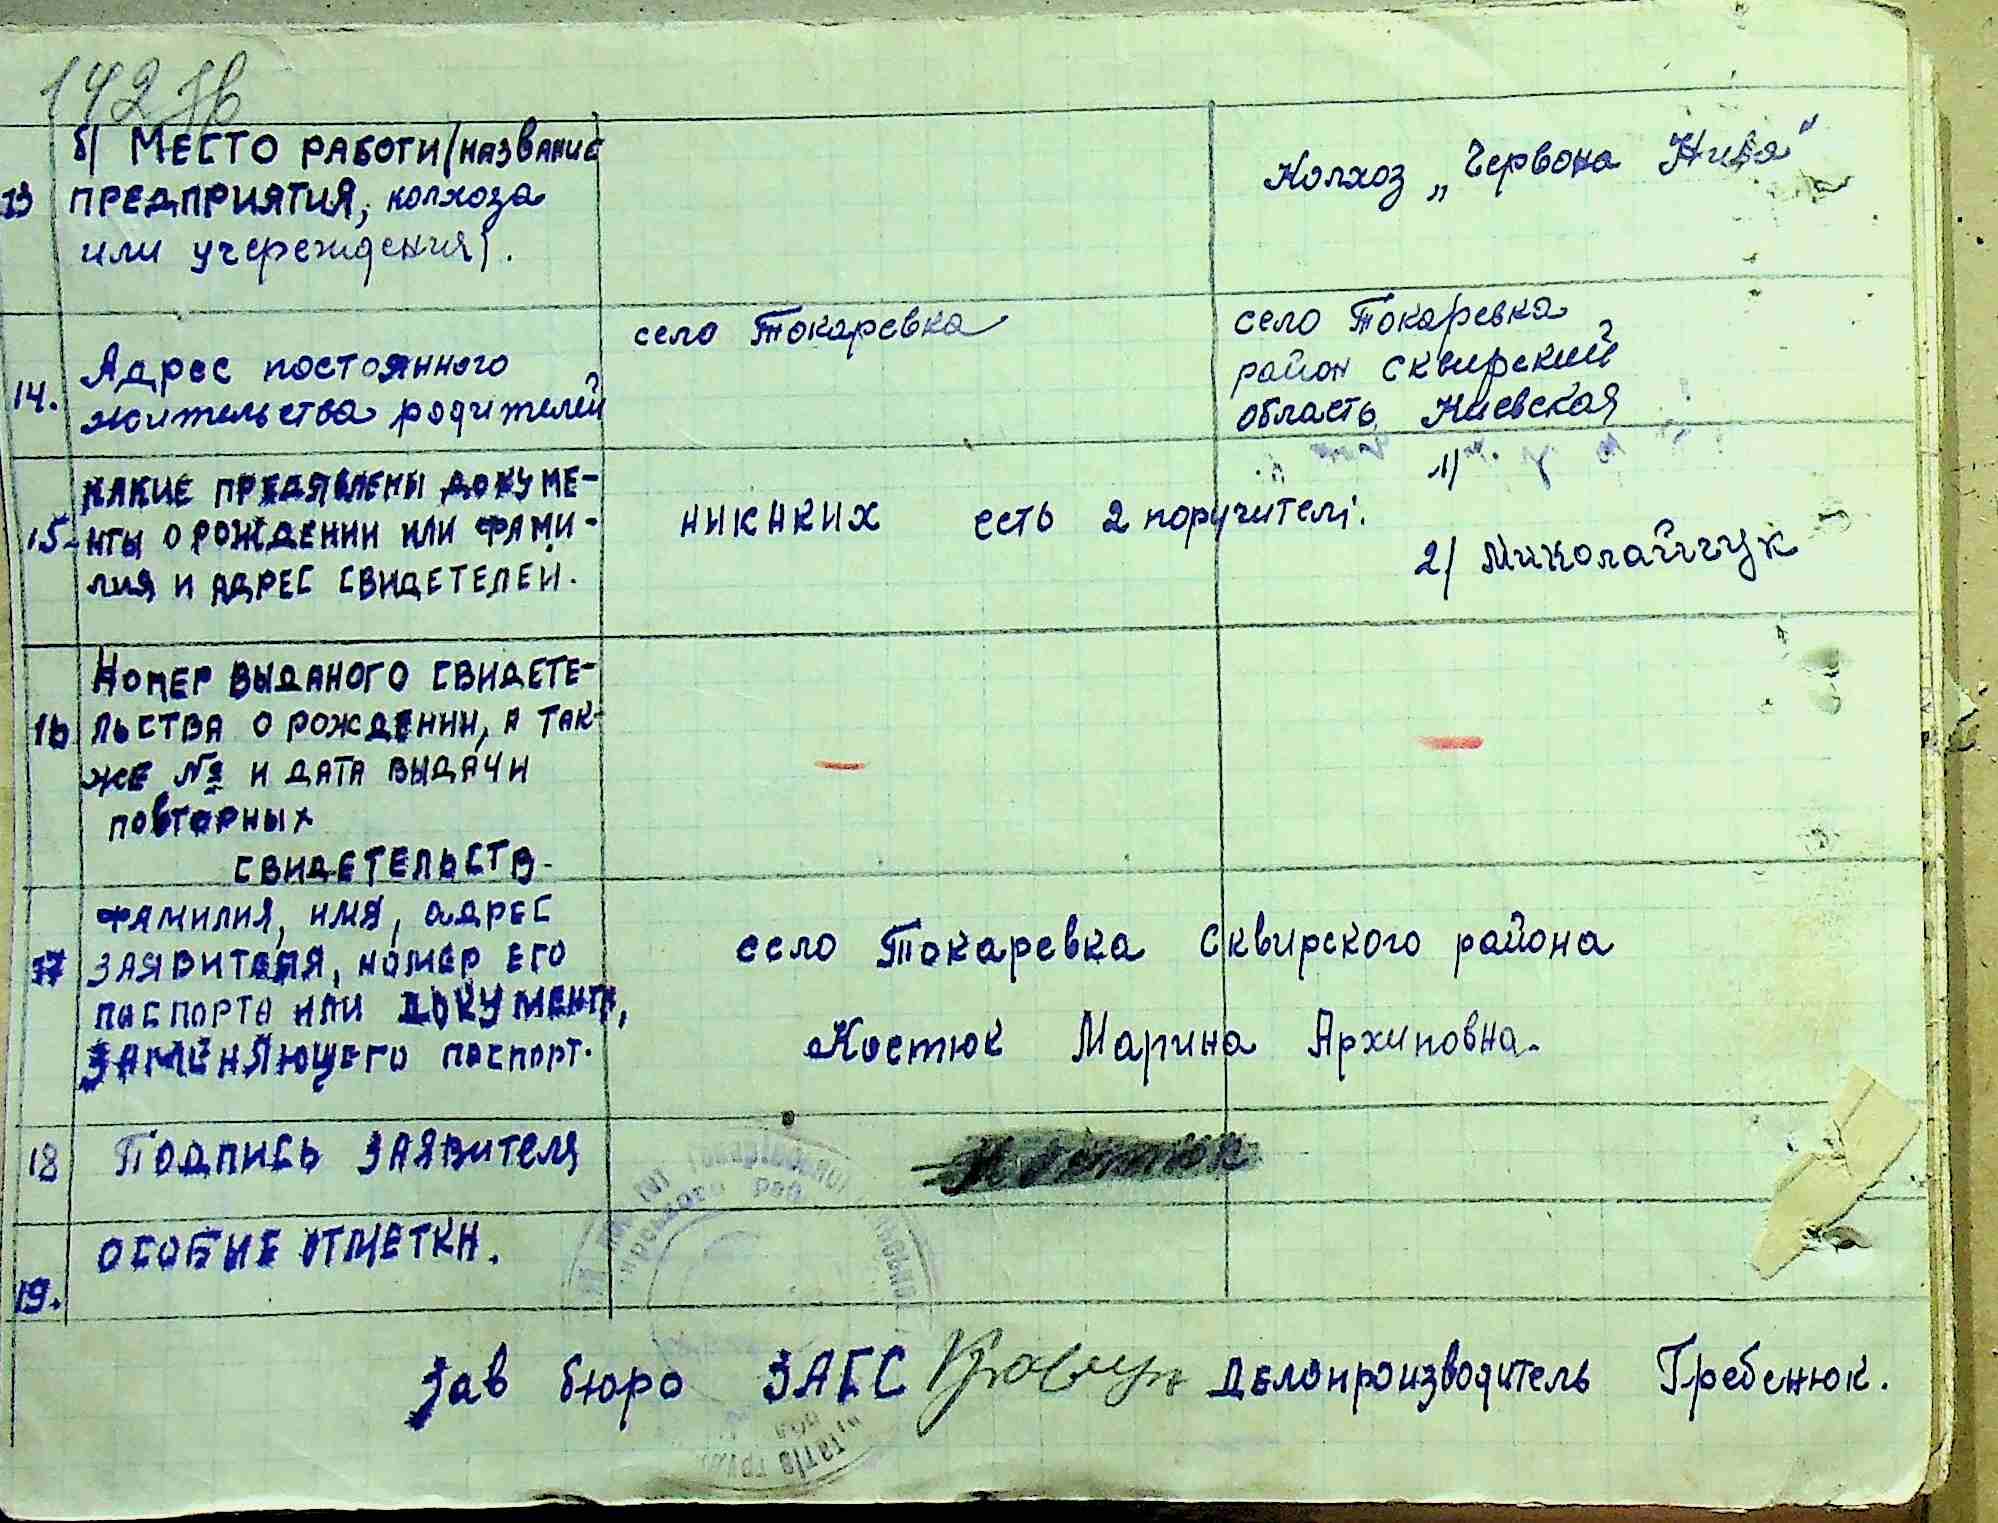 142
б) Место работи (название
13 предприятия, колхоза
или учереждения).
Колхоз „Червона Нива"
14. Адрес постоянного
жительства родителей
село Токаревка
село Токаревка
район Сквирский
область Киевская
15. Какие предявлены докуме-
нты о рождении или фами-
лия и адрес свидетелей.
никаких есть 2 поручителі.
1)
2) Миколайчук
Номер выданого свидете-
16 льства о рождении, а так-
же № и дата выдачи
повторных
свидетельств.
Фамилия, имя, адрес
17 заявителя, номер его
паспорта или документа,
заменяющего паспорт.
село Токаревка Сквирского района
Костюк Марина Архиповна.
18 Подпись заявителя
Костюк
19. Особые отметки.
Зав бюро ЗАГС
Делопроизводитель Гребенюк.